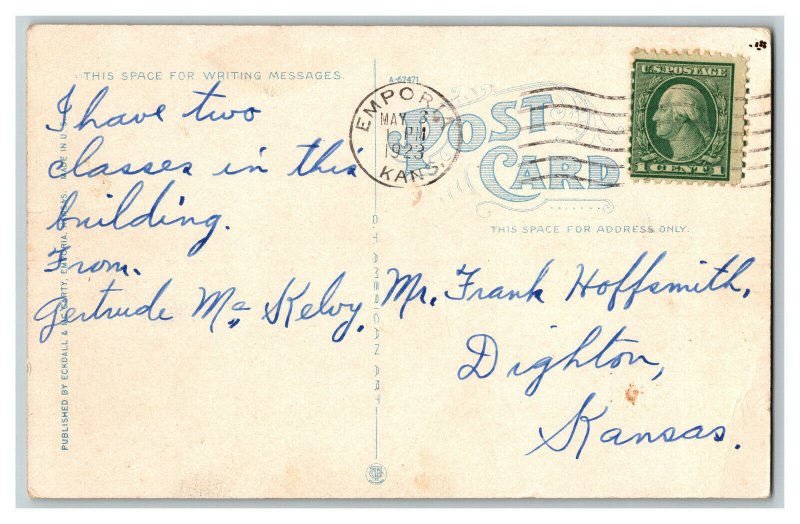 THIS SPACE FOR WRITING MESSAGES.
I have two
classes in this
building.
From.
Gertrude Mc Kelvy.
PUBLISHED BY ECKDALL & MC CARTY, EMPORIA, KANSAS. MADE IN U.S.A.
A-62471
C.T. AMERICAN ART
EMPORIA
MAY 3
1 PM
1923
KANS.
POST
CARD
U.S. POSTAGE
1 CENT 1
THIS SPACE FOR ADDRESS ONLY.
Mr. Frank Hoffsmith,
Dighton,
Kansas.